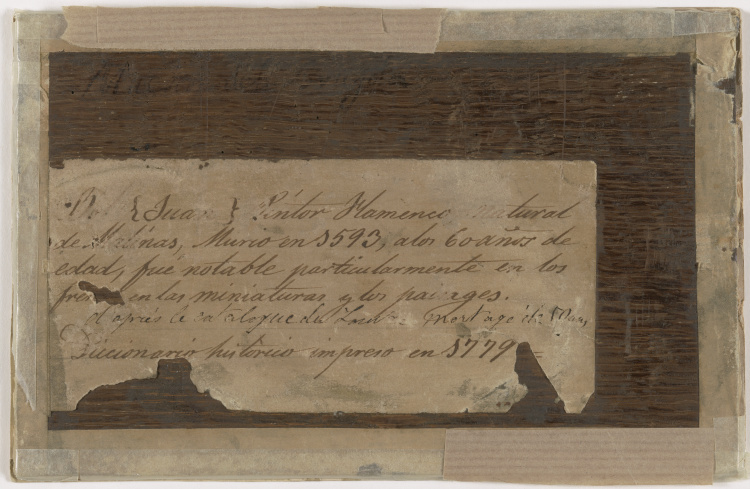 Bol {Juan} Pintor Flamenco natural
de Malinas, Murio en 1593, a los 60 años de
edad, fué notable particularmente en los
en las miniaturas y los paisages.
d'après le catalogue du
Diccionario historico impreso en 1779=